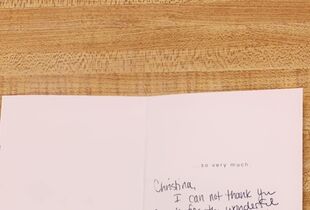 so very much
Christina,
I can not thank you
for the wonderful